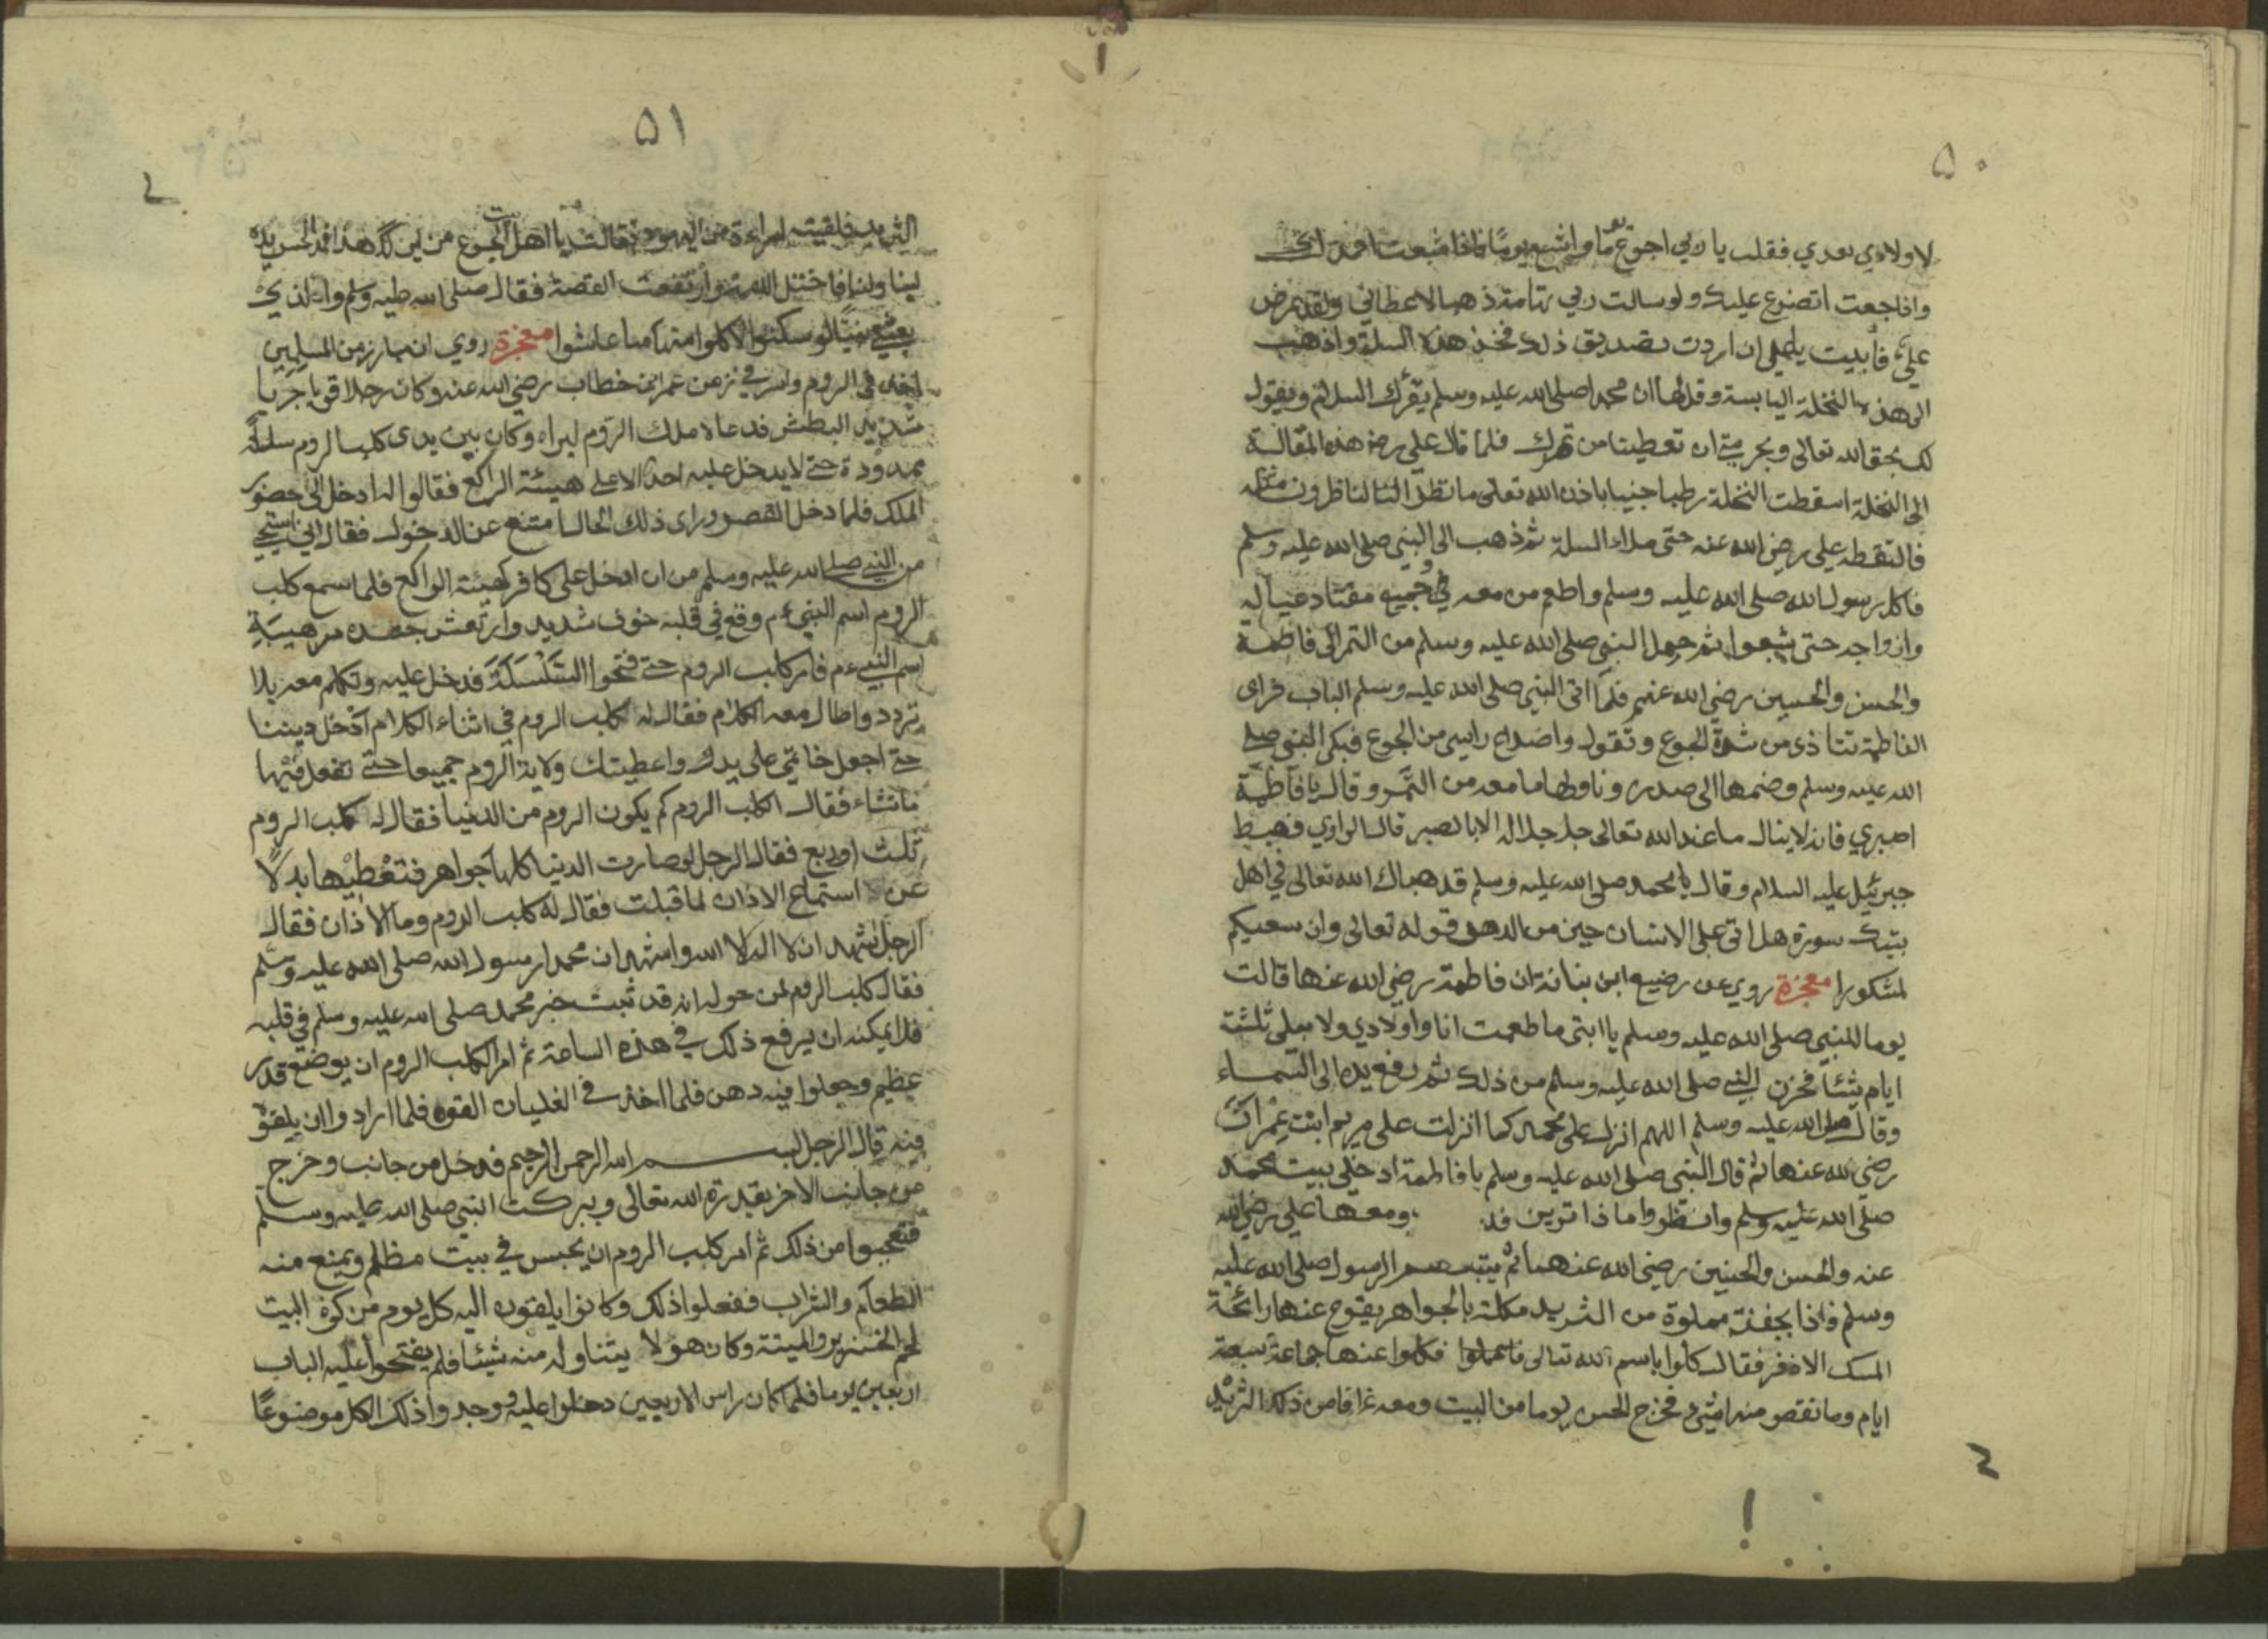 ٥٠
لاولادي بعدي فقلت يا ربي اجوع يوما واشبع يوما فاذا شبعت احمدك
واذا جعت اتضرع عليك ولو سالت ربي تهامة ذهبا لاعطاني ولقد عرض
علي فأبيت يا علي ان اردت تصديق ذلك فخذ هذه السلة واذهب
الى هذه النخلة اليابسة وقل لها ان محمدا صلى الله عليه وسلم يقرئك السلام ويقول
لك بحق الله تعالى وبحرمتي ان تعطينا من تمرك فلما قال علي رضه هذه المقالة
الى النخلة اسقطت النخلة رطبا جنيا باذن الله تعالى ما نظر الناظرون مثله
فالتقطه علي رضي الله عنه حتى ملاء السلة ثم ذهب الى النبي صلى الله عليه وسلم
فاكل رسول الله صلى الله عليه وسلم واطعم من معه وجميع عياله
وازواجه حتى شبعوا ثم حمل النبي صلى الله عليه وسلم من التمر الى فاطمة
والحسن والحسين رضي الله عنهم فلما اتى النبي صلى الله عليه وسلم الباب فراى
الفاطمة تتاذى من شدة الجوع وتقول واصداع راسي من الجوع فبكى النبي صلى
الله عليه وسلم وضمها الى صدره وناولها ما معه من التمر وقال يا فاطمة
اصبري فانه لا ينال ما عند الله تعالى جل جلاله الا بالصبر قال الراوي فهبط
جبرئيل عليه السلام وقال يا محمد صلى الله عليه وسلم قد هباك الله تعالى في اهل
بيتك سورة هل اتى على الانسان حين من الدهر قوله تعالى وان سعيكم
لمشكورا معجزة روي عن رضيع ابن بنانة ان فاطمة رضي الله عنها قالت
يوما للنبي صلى الله عليه وسلم يا ابتي ما طعمت انا واولادي ولا بعلي ثلثة
ايام شيئا فحزن النبي صلى الله عليه وسلم من ذلك ثم رفع يده الى السماء
وقال صلى الله عليه وسلم اللهم انزل على محمد كما انزلت على مريم ابنت عمران
رضي الله عنها ثم قال النبي صلى الله عليه وسلم يا فاطمة ادخلي بيت محمد
صلى الله عليه وسلم وانظروا ماذا ترين فد ومعها علي رضي الله
عنه والحسن والحسين رضي الله عنهما ثم يتبعهم الرسول صلى الله عليه
وسلم فاذا بجفنة مملوة من الثريد مكللة بالجواهر يفوح عنها رائحة
المسك الاذفر فقال كلوا باسم الله تعالى فاكلوا عنها جماعة سبعة
ايام وما نقص منه شيء فخرج الحسن يوما من البيت ومعه من ذلك الثريد
٥١
الثريد فلقيته امراءة من اليهود فقالت يا اهل بيت الجوع من اين لك هذا
روي ان مبارز من المسلمين
اخذ في الروم واسر في زمن عمر ابن خطاب رضي الله عنه وكان رجلا قويا جريا
شديد البطش فدعاه ملك الروم ليراه وكان بين يدى كلب الروم سلسلة
ممدودة حتى لا يدخل عليه احد الا على هيئة الراكع فقالوا له ادخل الى حضور
الملك فلما دخل القصر وراى ذلك الحال امتنع عن الدخول فقال اني استحيي
من النبي صلى الله عليه وسلم من ان ادخل على كافر كهيئة الراكع فلما سمع كلب
الروم اسم النبي ءم وقع في قلبه خوف شديد وارتعش جسده من هيبة
اسم النبي ءم فامر كلب الروم حتى فتحوا السلسلة فدخل عليه وتكلم معه بلا
تردد واطال معه الكلام فقال له كلب الروم في اثناء الكلام ادخل ديننا
حتى اجعل خاتمي على يدك واعطيتك ولاية الروم جميعا حتى تفعل فيها
ما تشاء فقال كلب الروم كم يكون الروم من الدنيا فقال له كلب الروم
ثلث او ربع فقال الرجل لو صارت الدنيا كلها جواهر فتعطيها بدلا
عن استماع الاذان لما قبلت فقال له كلب الروم وما الاذان فقال
الرجل اشهد ان لا اله الا الله واشهد ان محمدا رسول الله صلى الله عليه وسلم
فقال كلب الروم لمن حوله انه قد ثبت خبر محمد صلى الله عليه وسلم في قلبه
فلا يمكنه ان يرفع ذلك في هذه الساعة ثم امر كلب الروم ان يوضع قدر
عظيم وجعلوا فيه دهن فلما اخذ في الغليان القوه فلما ارادوا ان يلقوه
فيه قال الرجل بسم الله الرحمن الرحيم فدخل من جانب وخرج
من جانب الاخر بقدرة الله تعالى وببركت النبي صلى الله عليه وسلم
فتعجبوا من ذلك ثم امر كلب الروم ان يحبس في بيت مظلم ويمنع منه
الطعام والشراب ففعلوا ذلك وكانوا يلقون اليه كل يوم من كوة البيت
لحم الخنزير والميتة وكان هو لا يتناول منه شيئا فلم يفتحوا عليه الباب
اربعين يوما فلما كان راس الاربعين دخلوا عليه وجدوا ذلك الكل موضوعا